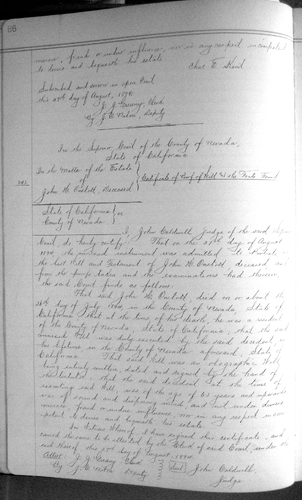 menace, fraud or undue influence, nor in any respect incompetent
to devise and bequeath his estate
Chas. E.
Subscribed and sworn in open Court
this 25th day of August, 1894
J. J. Greany, Clerk
By J. G. Nelon, Deputy
In the Superior Court of the County of Nevada,
State of California
In the Matter of the Estate
Certificate of Proof of Will and the Facts Found
John H. deceased
State of California } ss
County of Nevada
I, John Caldwell, Judge of the said Superior
Court, do hereby certify: That on the 25th day of August
1894, the annexed instrument was admitted to Probate as
the last Will and Testament of John H. deceased and
from the proofs taken and the examinations had therein
the said Court finds as follows:
That said John H. died on or about the
day of July 1894 in the County of Nevada, State of
California. That at the time of his death, he was a resident
of the County of Nevada, State of California, that the said
annexed Will was duly executed by the said decedent, in
his lifetime in the County of Nevada aforesaid, State of
California. That said Will was an olographic Will
being entirely written, dated and signed by the hand of
the testator, that the said decedent at the time of
executing said Will, was of the age of 21 years and upwards
was of sound and disposing mind, and not under duress
menace, fraud or undue influence, nor in any respect incom-
petent to devise and bequeath his estate.
In Witness Whereof, I have signed this certificate, and
caused the same to be attested by the Clerk of said Court, under the
seal thereof this 25th day of August, 1894.
Attest: J. J. Greany Clerk
By J. G. Nelon Deputy
Seal
John Caldwell,
Judge